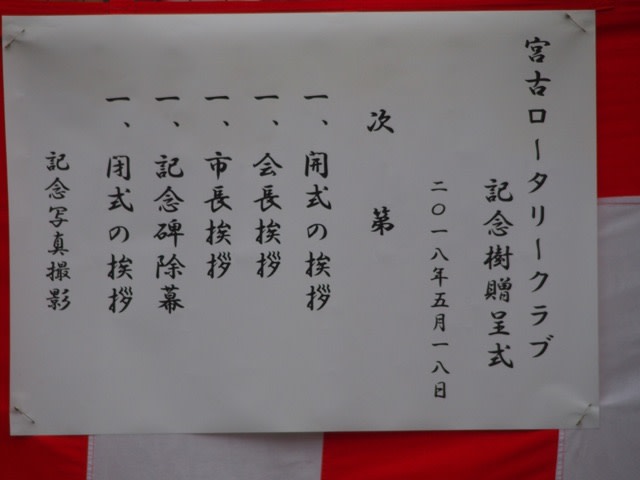 宮古ロータリークラブ
記念樹贈呈式
二〇一八年五月一八日
次第
一、開式の挨拶
一、会長挨拶
一、市長挨拶
一、記念碑除幕
一、閉式の挨拶
記念写真撮影